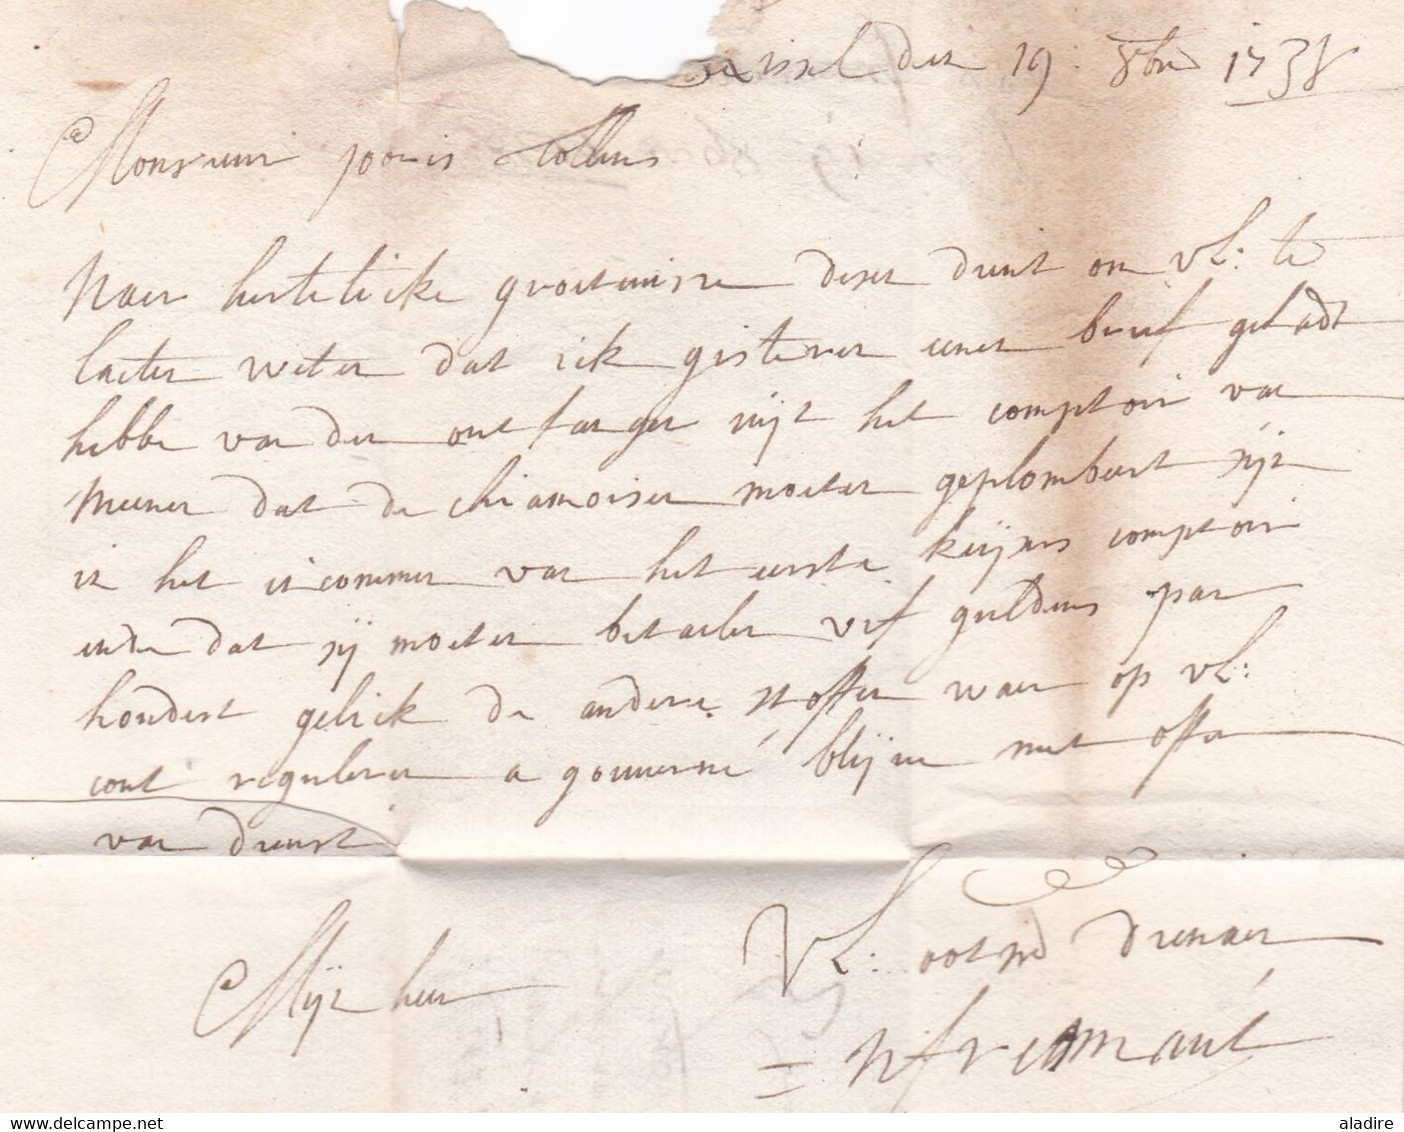 Rissel den 19 8bre 1738
Monsieur joovis Tollens
Naer hertelicke groetenisse deser dient om vl: te
laeten weten dat ick gisteren eenen brief gehadt
hebbe van den ontfanger uijt het comptoir van
Meenen dat de chiamoisen moeten geplombeert sijn
in het incommen van het eerste keijsers comptoir
ende dat sij moeten betaelen vijf guldens par
hondert gelick de andere stoffen waer op vl:
cont reguleren a gouverne blijve met offer
van dienst
Vl: ootm dienaer
Mijn heer
fremaut
aladire